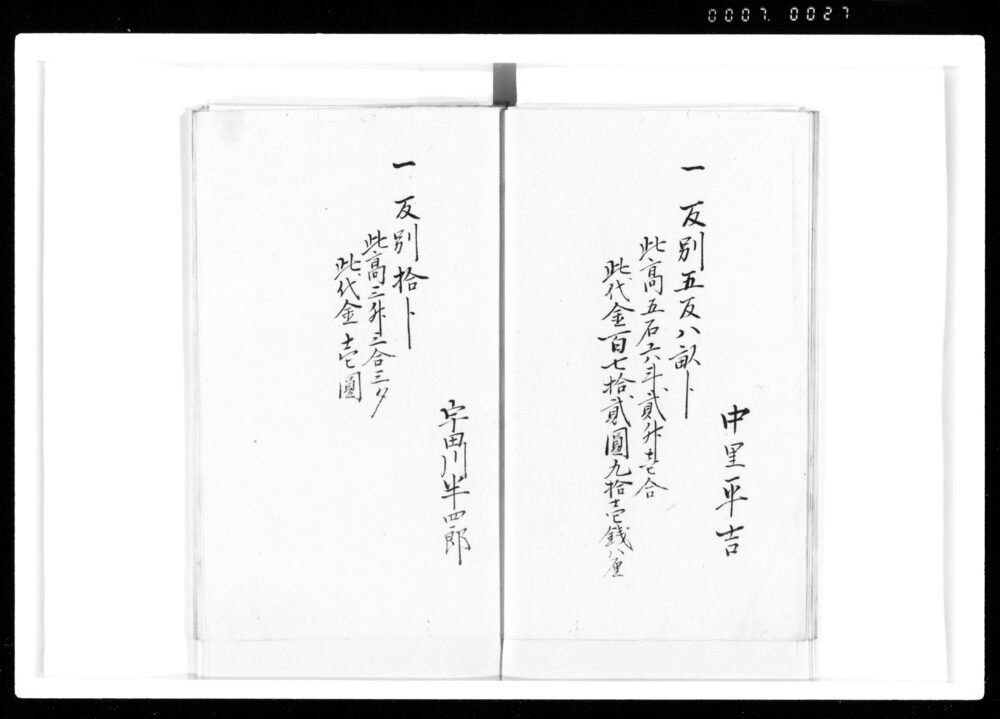 0007. 0027
中里平吉
一 反別五反八畝歩
此高五石六斗貳升壱合
此代金百七拾貳圓九拾壱銭八厘
宇田川半四郎
一 反別拾歩
此高三升三合三夕
此代金壱圓